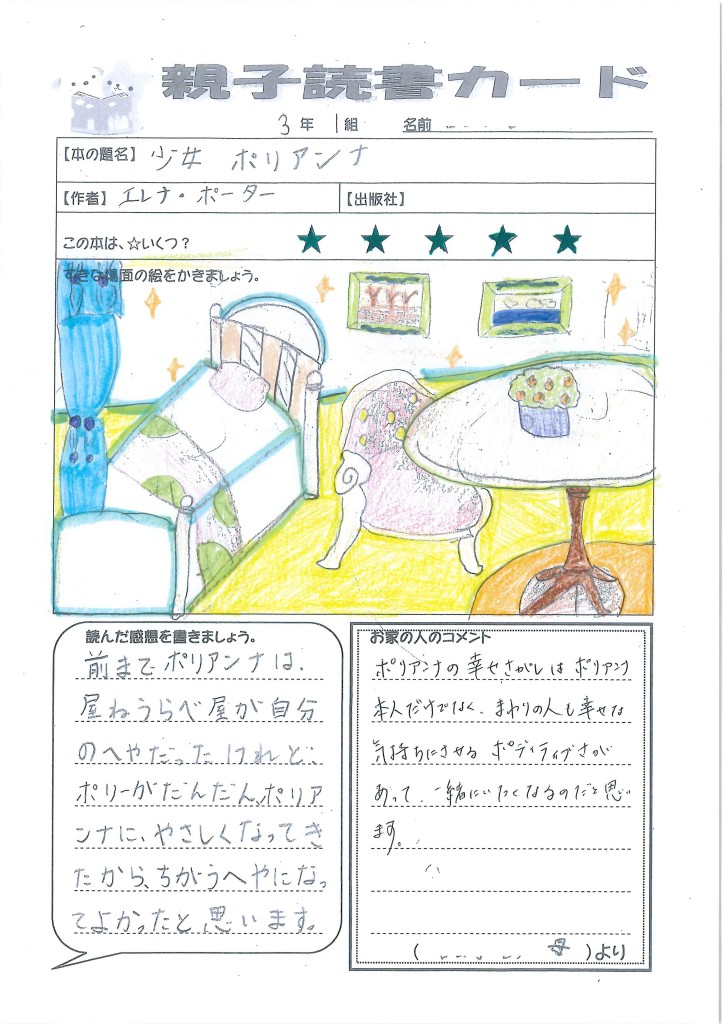 親子読書カード
3年 1組 名前
【本の題名】 少女 ポリアンナ
【作者】 エレナ・ポーター 【出版社】
この本は、☆いくつ? ★ ★ ★ ★ ★
すきな場面の絵をかきましょう。
読んだ感想を書きましょう。
前までポリアンナは、
屋ねうらべ屋が自分
のへやだったけれど、
ポリーがだんだん、ポリア
ンナに、やさしくなってき
たから、ちがうへやになっ
てよかったと思います。
お家の人のコメント
ポリアンナの幸せさがしはポリアンナ
本人だけでなく、まわりの人も幸せな
気持ちにさせるポディティブさが
あって、一緒にいたくなるのだと思い
ます。
( 母 )より